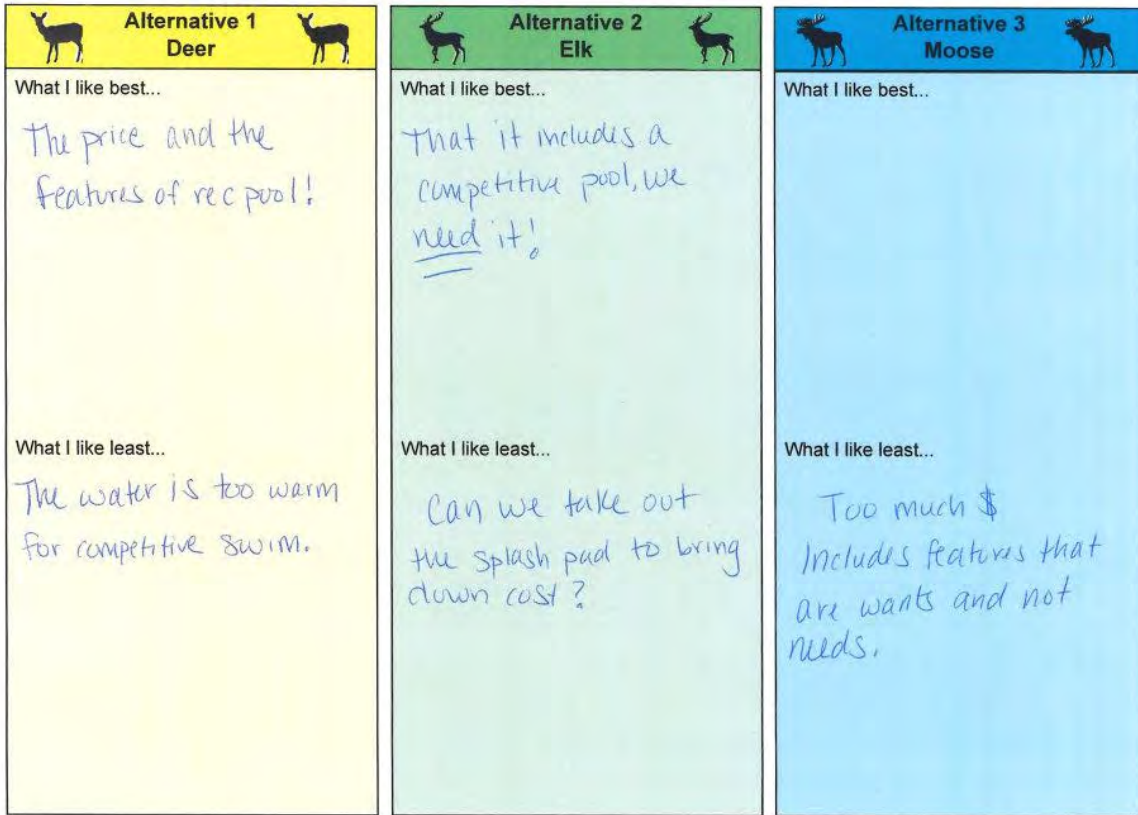 Alternative 1
Deer
What I like best...
The price and the
features of rec pool!
What I like least...
The water is too warm
for competitive swim.
Alternative 2
Elk
What I like best...
That it includes a
competitive pool, we
need it!
What I like least...
Can we take out
the splash pad to bring
down cost?
Alternative 3
Moose
What I like best...
What I like least...
Too much $
Includes features that
are wants and not
needs.